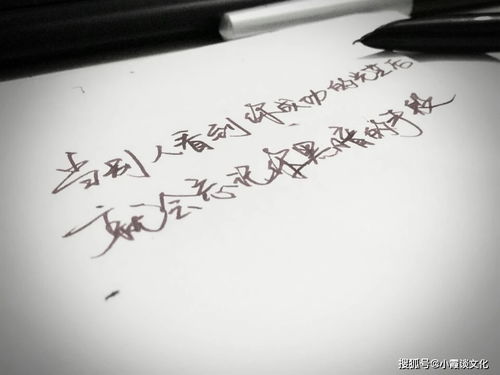 当别人看到你成功的光芒后
就会忘记你黑暗的手段
搜狐号@小霞谈文化